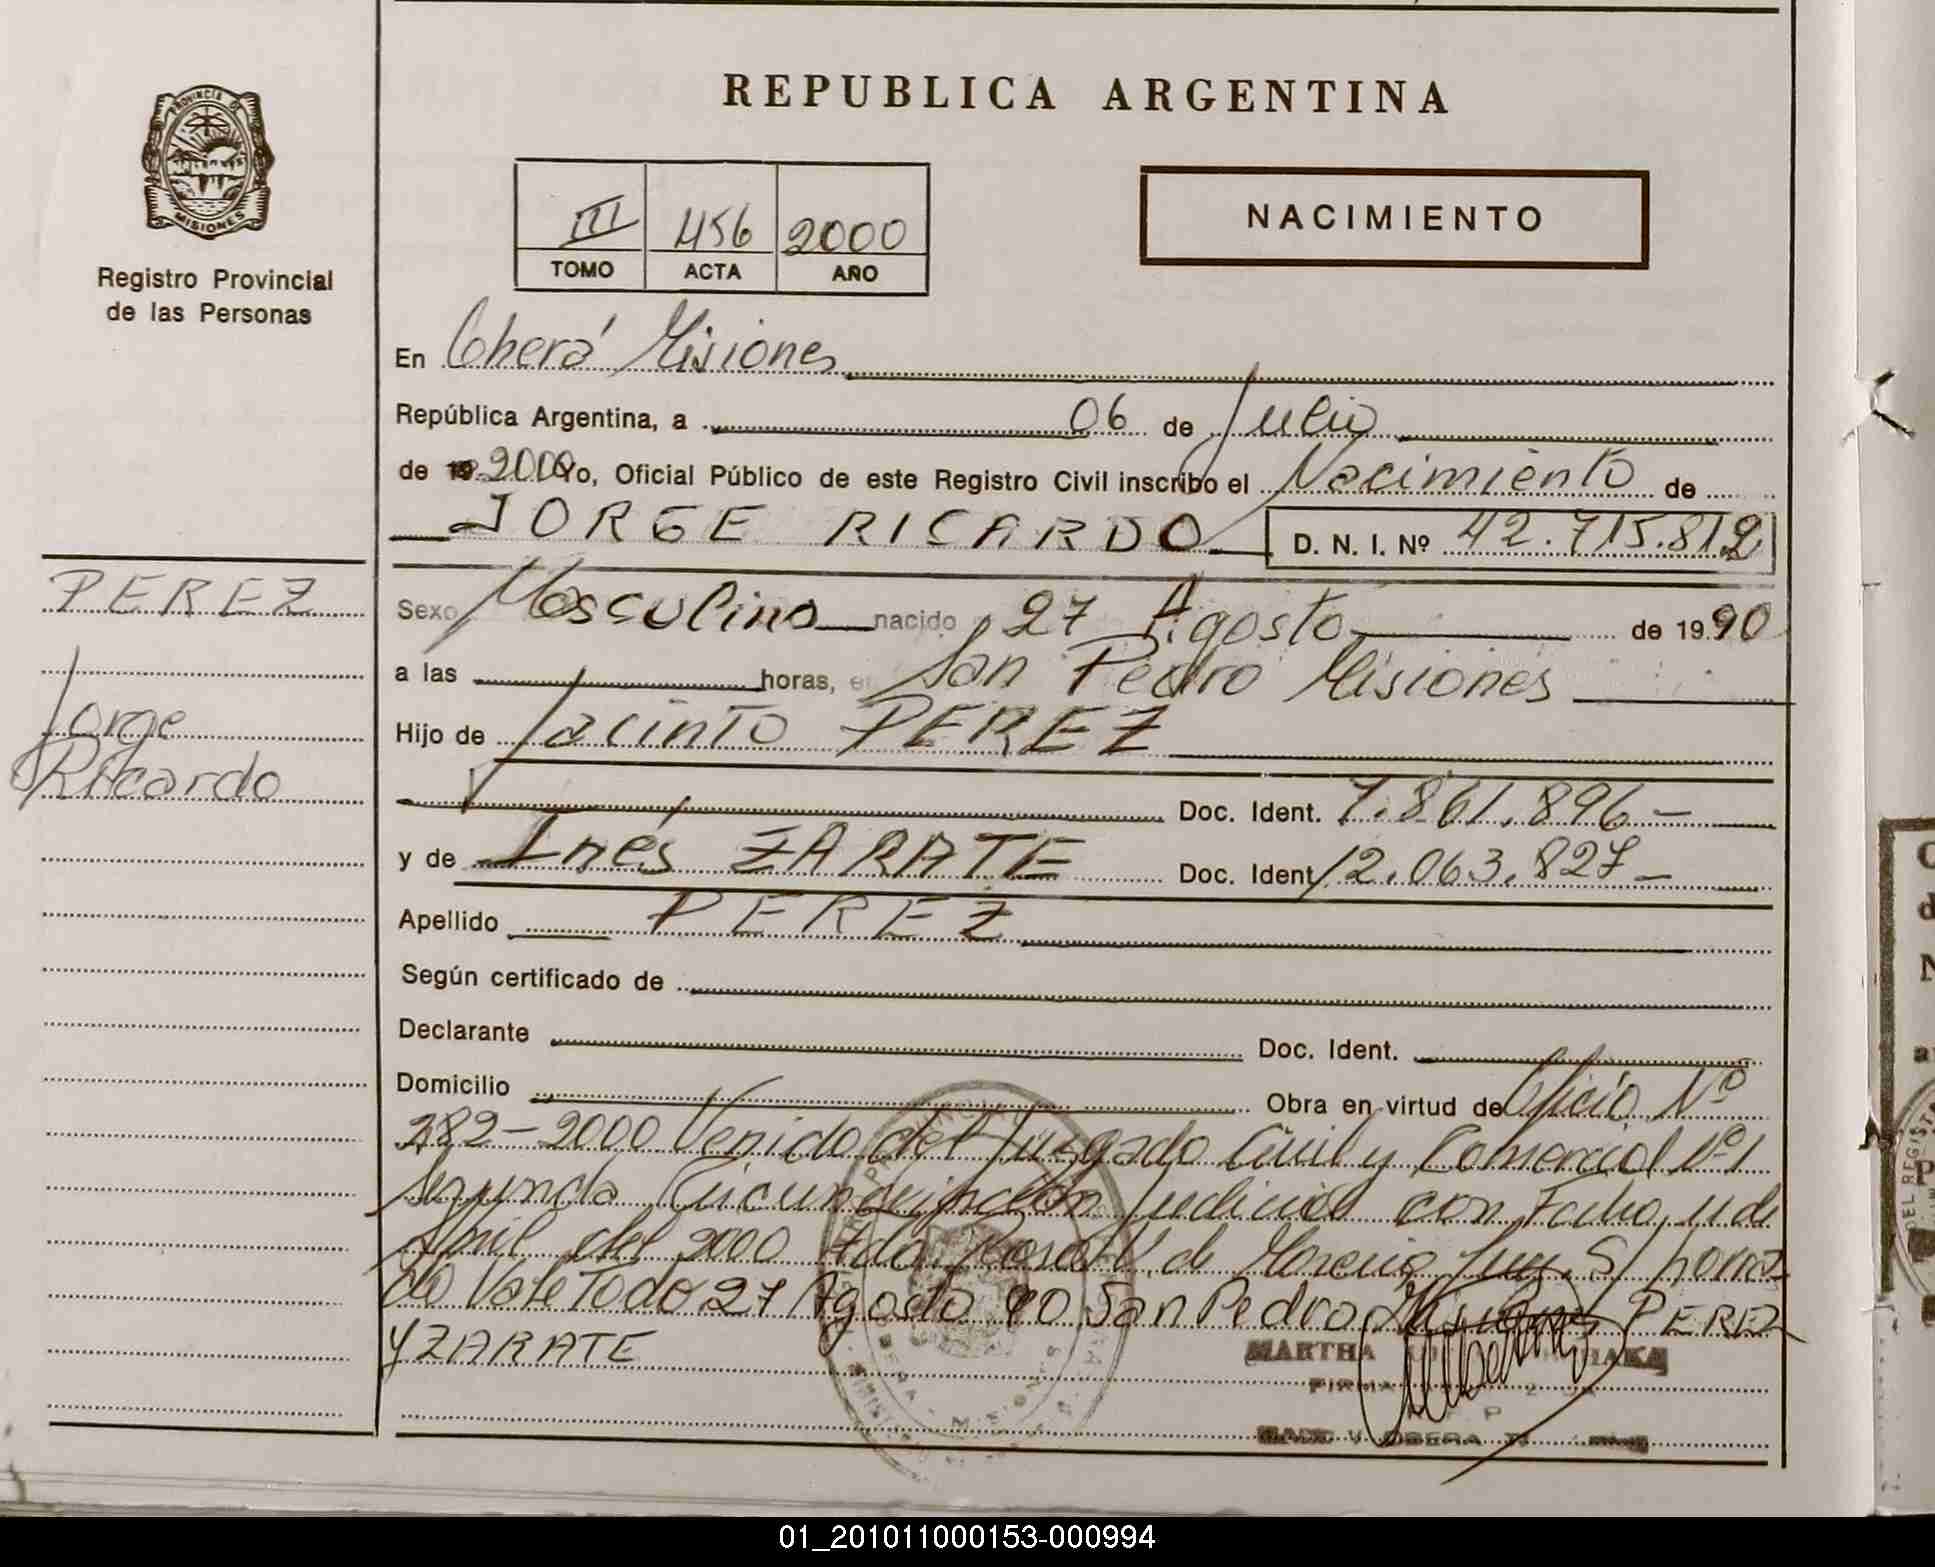 REPUBLICA ARGENTINA
PROVINCIA DE
MISIONES
Registro Provincial
de las Personas
III 456 2000
TOMO ACTA AÑO
NACIMIENTO
En Oberá Misiones
República Argentina, a 06 de Julio
de 19 2000 Yo, Oficial Público de este Registro Civil inscribo el Nacimiento de
JORGE RICARDO D. N. I. Nº 42.715.812
PEREZ
Jorge
Ricardo
Sexo Masculino nacido 27 Agosto de 1990
a las horas, en San Pedro Misiones
Hijo de Jacinto PEREZ
Doc. Ident. 7.861.896-
y de Inés ZARATE Doc. Ident 12.063.827-
Apellido PEREZ
Según certificado de
Declarante Doc. Ident.
Domicilio Obra en virtud de Oficio Nº
282-2000 Venido del Juzgado Civil y Comercial Nº1
Segunda Circunscripción Judicial con Fecha 11 de
Abril del 2000 Fdo de Juez S/
do Vale Todo 27 Agosto 90 San Pedro Misiones PEREZ
y ZARATE
MARTHA
FIRMA
OBERA
01_201011000153-000994